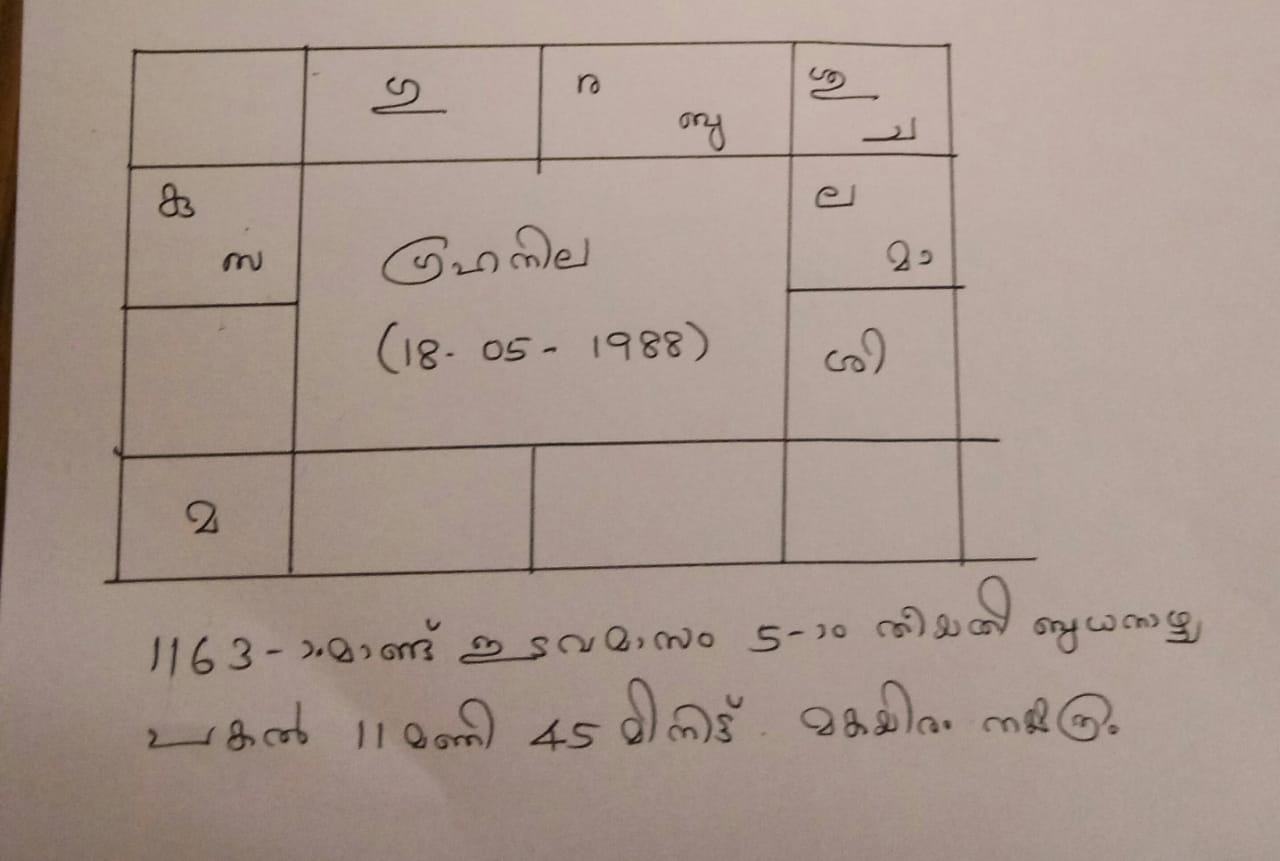 ഗു
ര
ബു
ശു
ച
കു
സ
ഗ്രഹനില
(18- 05- 1988)
ല
മാ
ശി
മ
1163-ാമാണ്ട് ഇടവമാസം 5-ാം തിയതി ബുധനാഴ്ച
പകൽ 11 മണി 45 മിനിട്ട്. മകയിരം നക്ഷത്രം.